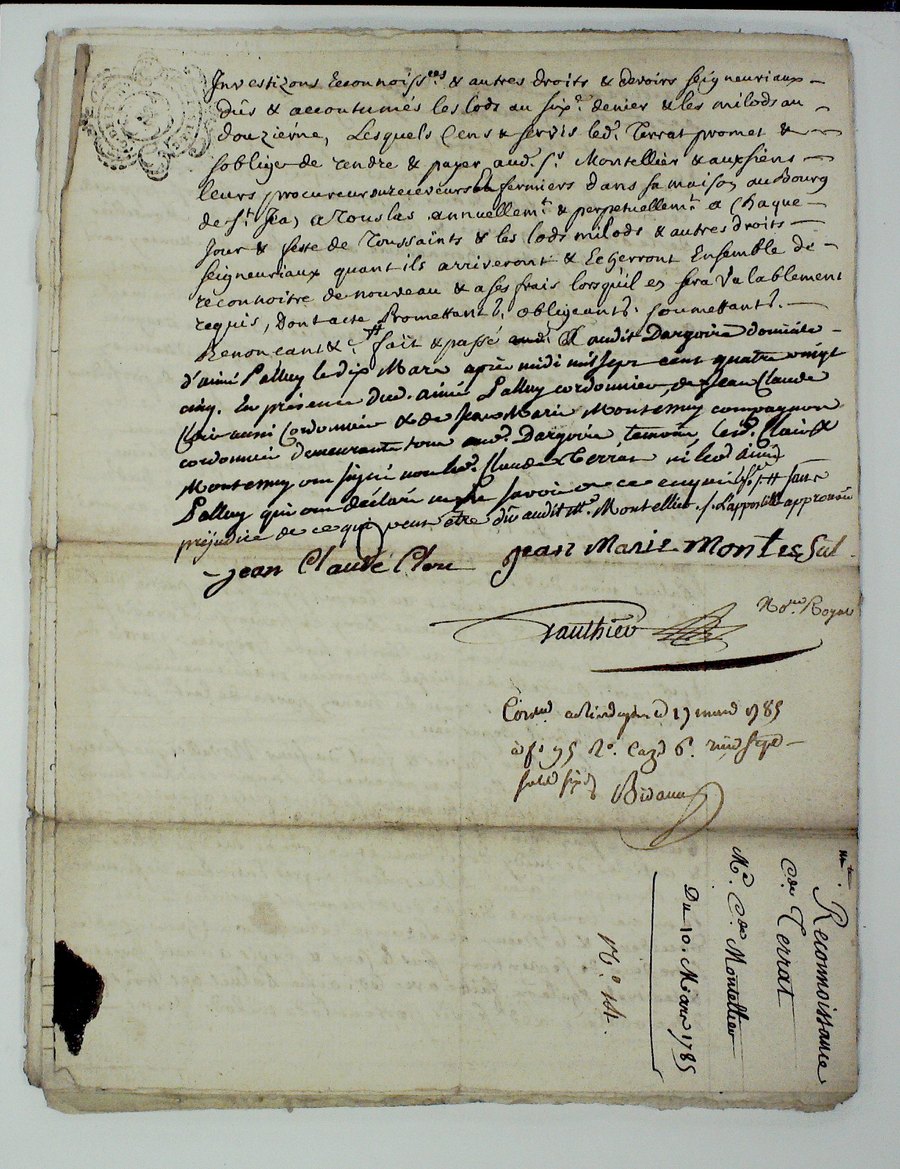 Investizons Reconnoiss.ces & autres droits & devoirs seigneuriaux
dûs & accoutumés les lods au six.e denier & les milods au
douziéme, Lesquels Cens & servis led. Terrat promet &
s'oblige de rendre & payer aud. S.r Montellier & aux siens
leurs procureurs ou receveurs ou fermiers dans sa maison au Bourg
de S.t Jean a Touslas annuellem.t & perpetuellem.t a Chaque
Jour & feste de Toussaints & les lods milods & autres droits
seigneuriaux quant ils arriveront & Echerront Ensemble de
reconnoitre de nouveau & a ses frais lorsqu'il en sera Valablement
requis, Dont acte Promettant. obligeant. soumettant.
Renonçant & fait & passé audit Dargoire domicile
d'aimé Palluy le dix Mars après midi mil sept cent quatre vingt
cinq. En présence dud. aimé Palluy cordonnier, de Jean Claude
aussi Cordonnier & de Jean Marie Montessuy compagnon
cordonnier demeurants tous aud. Dargoire, temoins, les d.
Montessuy ont signé non led. Claude Terrat ni led. aimé
Palluy qui ont déclaré ne savoir de ce enquis sans
préjudice de ce qui peut être dû audit M.e Montellier ./. L'apostille approuvée
Jean Claude Jean Marie Montessui
Gauthier No.re Royal
mars 1785
à f.o 95 R.o Caze 6.
sols six d
Reconnoissance
C.de Terrat
M.e C.de Montellier
Du 10. Mars 1785